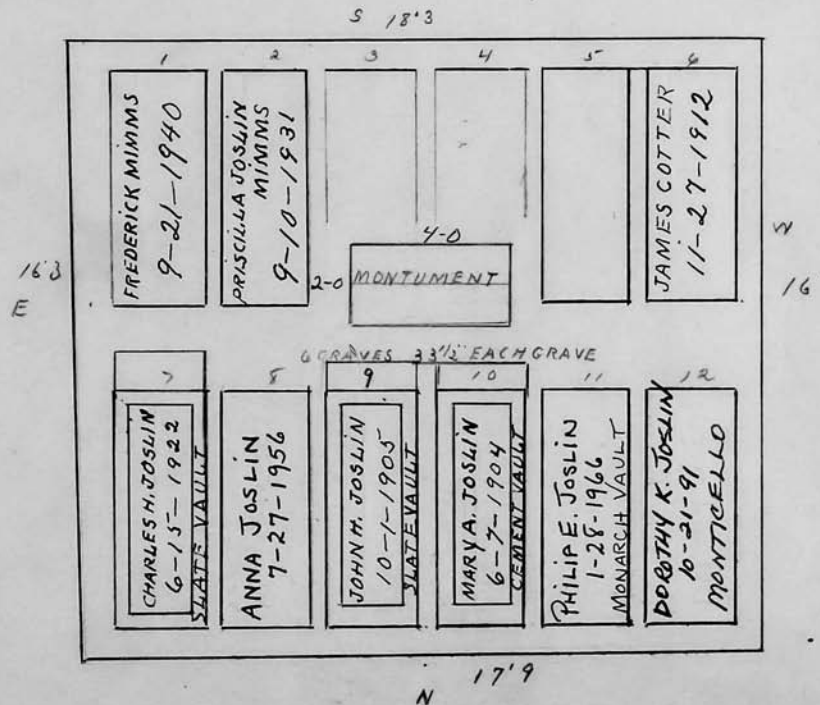 S 18'3
1 2 3 4 5 6
FREDERICK MIMMS
9-21-1940
PRISCILLA JOSLIN
MIMMS
9-10-1931
JAMES COTTER
11-27-1912
4-0
2-0
MONTUMENT
16'3
E
W
16
6 GRAVES 33 1/2" EACH GRAVE
7 8 9 10 11 12
CHARLES H. JOSLIN
6-15-1922
SLATE VAULT
ANNA JOSLIN
7-27-1956
JOHN H. JOSLIN
10-1-1905
SLATE VAULT
MARY A. JOSLIN
6-7-1904
CEMENT VAULT
PHILIP E. JOSLIN
1-28-1966
MONARCH VAULT
DOROTHY K. JOSLIN
10-21-91
MONTICELLO
17'9
N